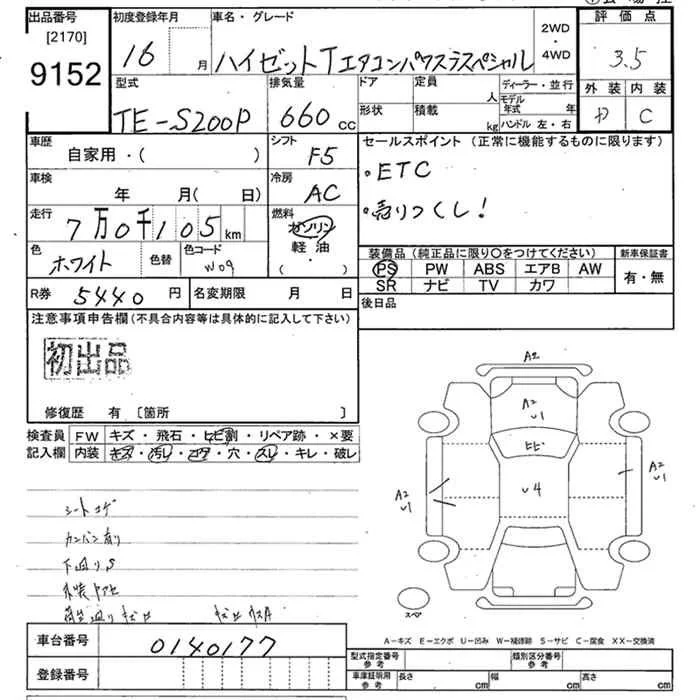 出品番号
[2170]
9152
初度登録年月
16
月
車名・グレード
ハイゼットTエアコンパワステスペシャル
2WD
・
4WD
評価点
3.5
外装 内装
D C
型式
TE-S200P
排気量
660 cc
ドア
形状
定員
人
積載
kg
ディーラー・並行
モデル年式 年
ハンドル 左・右
車歴
自家用・( )
シフト
F5
車検
年 月( 日)
冷房
AC
走行
7万0千105 km
燃料
ガソリン
軽油
( )
色
ホワイト
色替
色コード
W09
R券 5440 円
名変期限 月 日
セールスポイント (正常に機能するものに限ります)
・ETC
・売りつくし!
装備品(純正品に限り〇をつけてください)
PS PW ABS エアB AW
SR ナビ TV カワ
新車保証書
有・無
後日品
注意事項申告欄(不具合内容等は具体的に記入して下さい)
初出品
修復歴 有 [箇所 ]
検査員記入欄
FW キズ・飛石・ヒビ割・リペア跡・×要
内装 キズ・汚レ・コゲ・穴・スレ・キレ・破レ
シートコゲ
カンバン有り
下回りS
A2
A2
U1
ヒビ
U4
A2
U1
A2
U1
スペア
A－キズ E－エクボ U－凹み W－補修跡 S－サビ C－腐食 XX－交換済
車台番号 0140177
登録番号
型式指定番号
参考
類別区分番号
参考
車庫証明用
参考
長さ cm
幅 cm
高さ cm